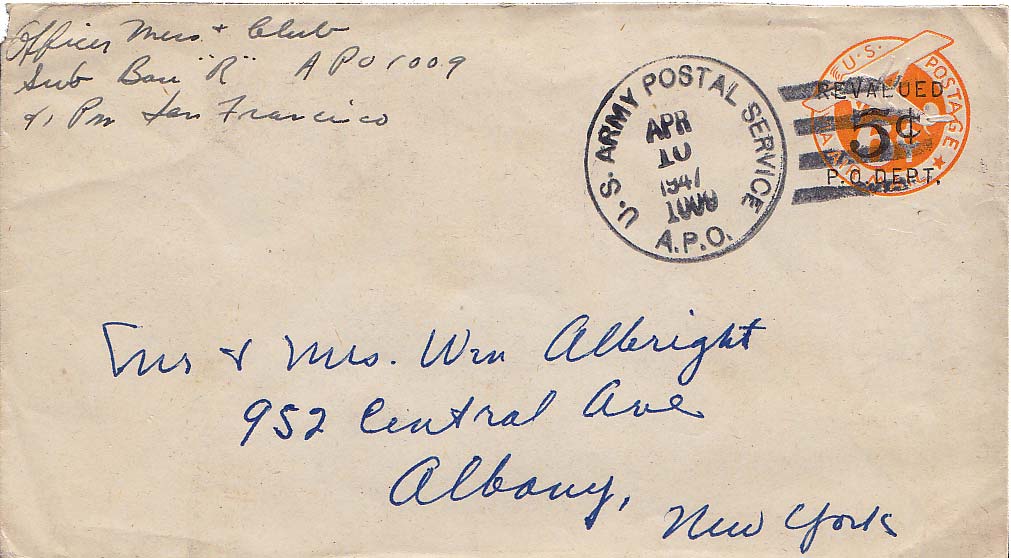 Officer Mess + Club
Sub Base "R" APO 1009
c/o PM San Francisco
U.S. ARMY POSTAL SERVICE
APR
10
1947
A.P.O.
U.S. POSTAGE
REVALUED
5¢
P.O. DEPT.
Mr & Mrs. Wm Albright
952 Central Ave
Albany,
New York